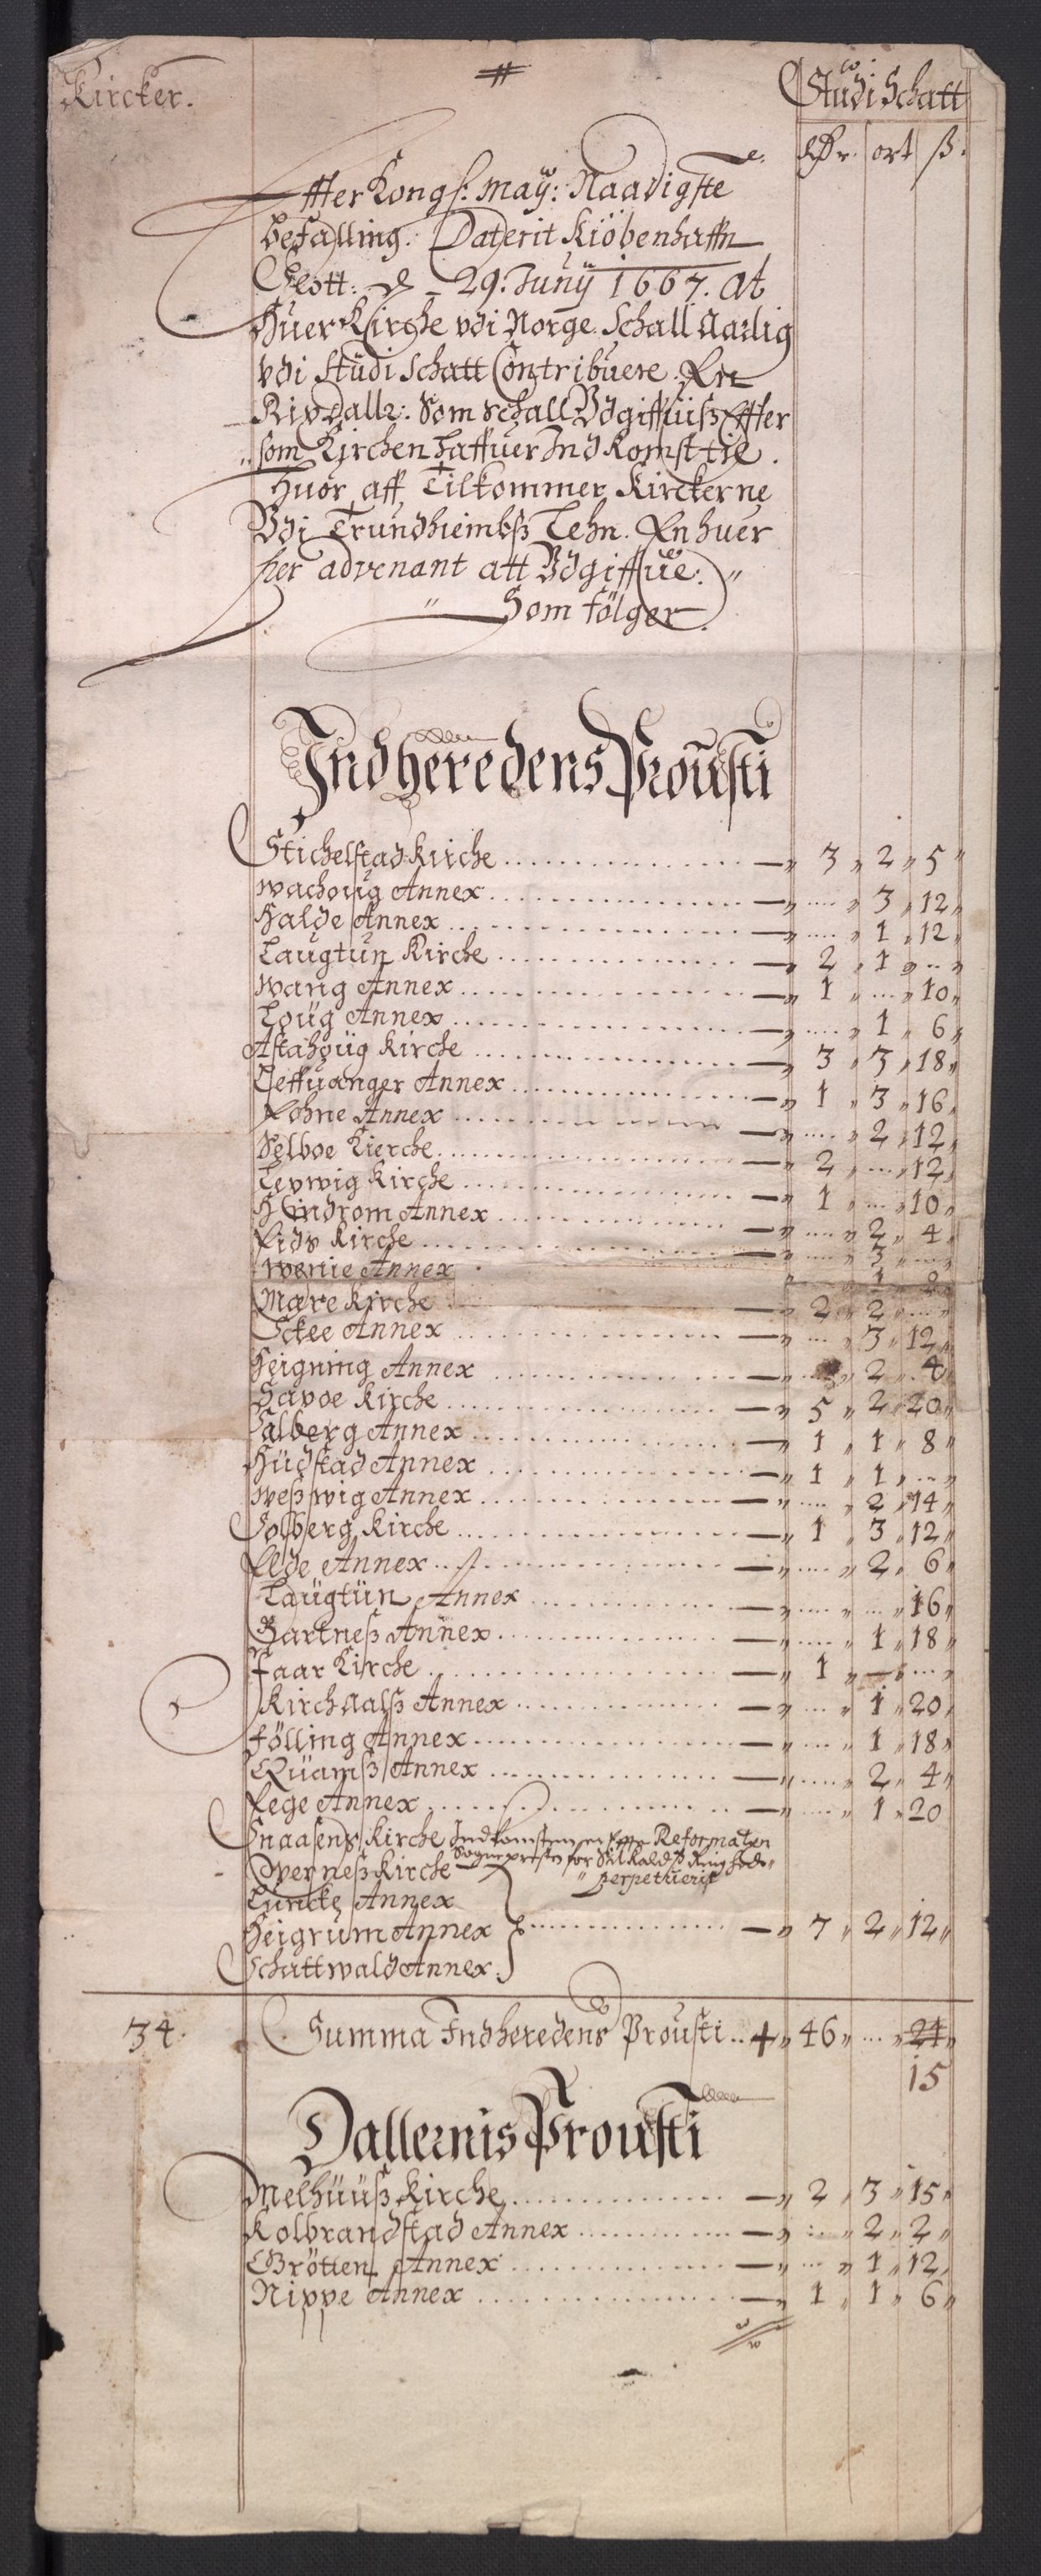 Kircker.
Studi Schatt
Rdr. ort ß.
Effter Kongl: May: Naadigste
befalling. Daterit Kiöbenhaffn
Slott: d. 29. Juny 1667. At
Huer Kirche vdi Norge Schall Aarlig
vdi Studi Schatt Contribuere. En
Rixdallr: Som Schall Vdgiffuiß Effter
som Kirchen haffuer Indkomst til.
Huor aff Tilkommer Kirckerne
Vdi Trundhiembß Lehn. En huer
her advenant att Vdgiffue:
Som fölger
Indheredens Prousti
Stichelstad Kirche 3 2 5
Wachoug Annex 3 12
Halde Annex 1 12
Laugtun Kirche 2 1
Wang Annex 1 10
Loug Annex 1 6
Alstahoug Kirche 3 3 18
Leffuanger Annex 1 3 16
Eohne Annex 2 12
Selboe Kierche 2 12
Lexwig Kirche 1 10
Hindrom Annex 2 4
Eids Kirche 3
Werie Annex 1 8
Mære Kirche 2 2
Eckee Annex 3 12
Heigning Annex 2 4
Saxoe Kirche 5 2 20
Salberg Annex 1 1 8
Hüdstad Annex 1 1
Weßwig Annex 2 14
Solberg Kirche 1 3 12
Elde Annex 2 6
Laugtün Annex 16
Bartneß Annex 1 18
Faar Kirche 1
Kirchaalß Annex 1 20
Fölling Annex 1 18
Quamß Annex 2 4
Eege Annex 1 20
Snaasens Kirche Indkomsten er Reformaten
Sogneprest for Sit Kald
perpetuerit
Overneß Kirche
Luncke Annex
Heigrum Annex 7 2 12
Schattwald Annex
34. Summa Indheredens Prousti 46 24
15
Dallernis Prousti
Melhuuß Kirche 2 3 15
Kolbrandstad Annex 2 2
Grötten Annex 1 12
Nippe Annex 1 1 6